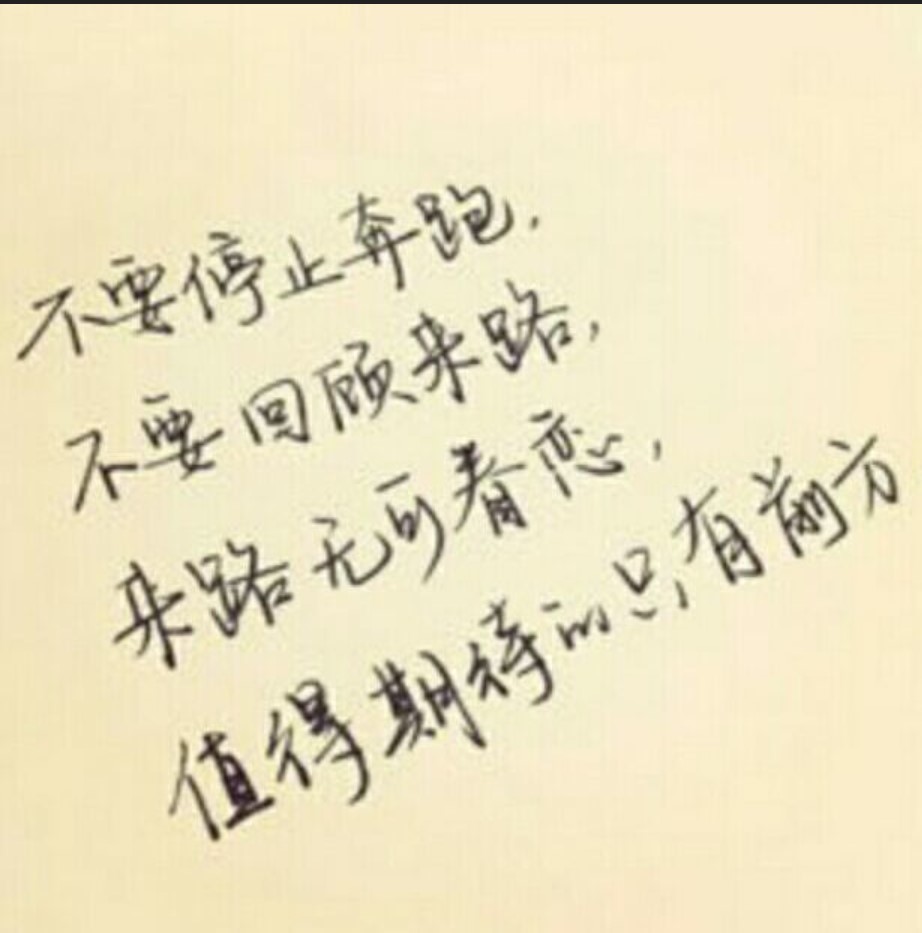 不要停止奔跑.
不要回顾来路,
来路无可眷恋,
值得期待的只有前方